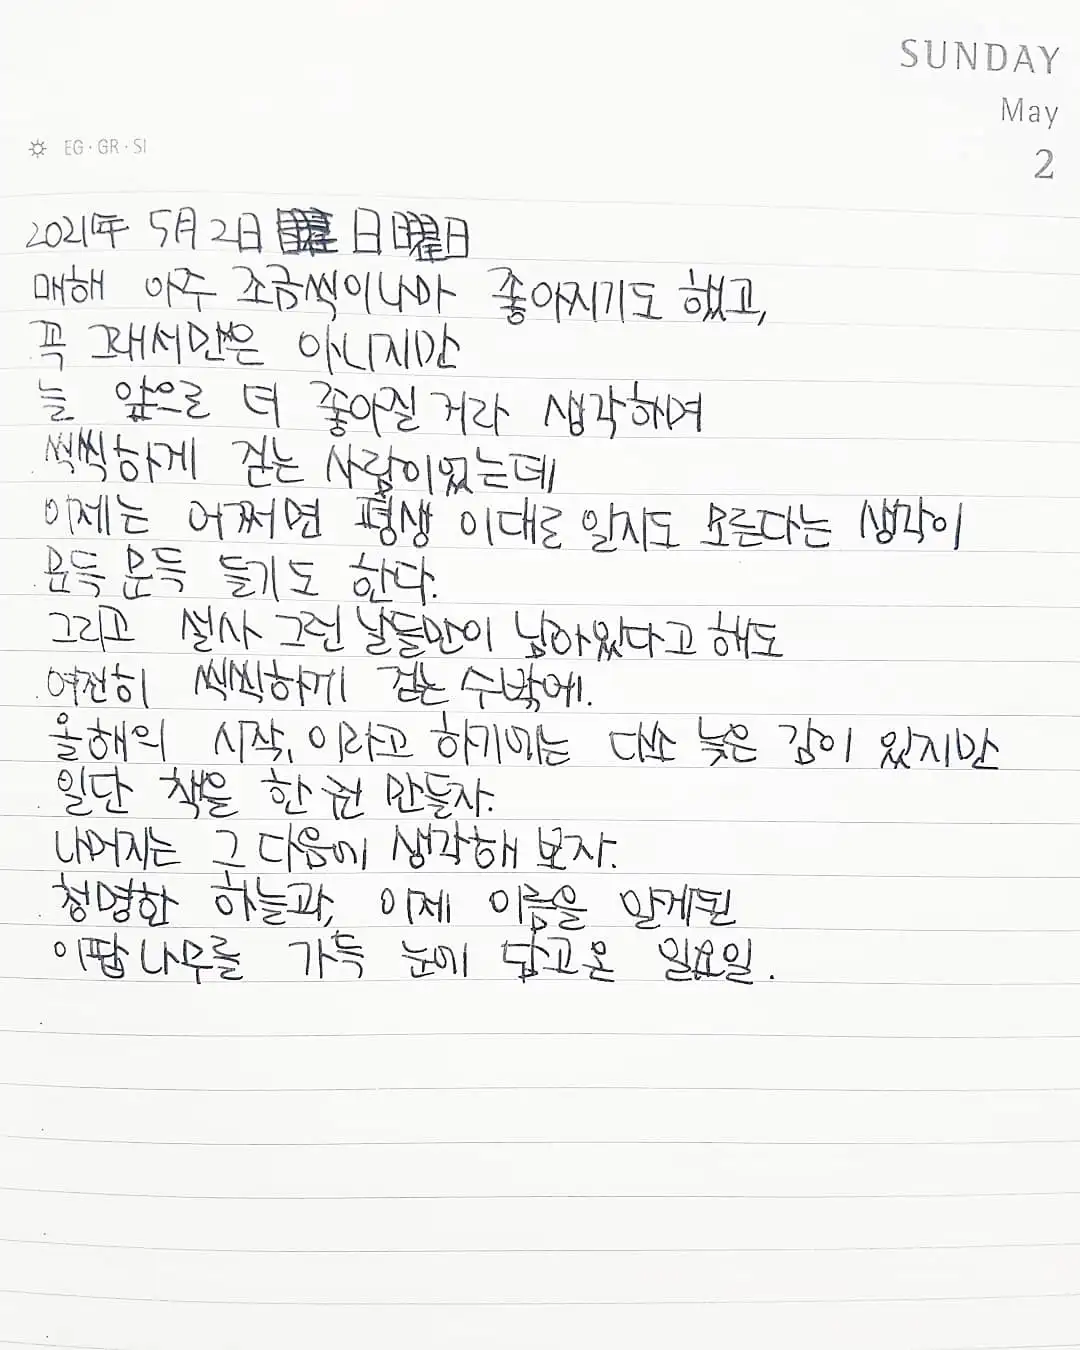 SUNDAY
May
2
EG·GR·SI
2021年 5月 2日 日曜日
매해 아주 조금씩이나마 좋아지기도 했고,
꼭 그래서만은 아니지만
늘 앞으로 더 좋아질 거라 생각하며
씩씩하게 걷는 사람이었는데
이제는 어쩌면 평생 이대로 일지도 모른다는 생각이
문득 문득 들기도 한다.
그리고 설사 그런 날들만이 남아있다고 해도
여전히 씩씩하게 걷는 수밖에.
올해의 시작, 이라고 하기에는 다소 늦은 감이 있지만
일단 책을 한 권 만들자.
나머지는 그 다음에 생각해 보자.
청명한 하늘과, 이제 이름을 알게된
이팝나무를 가득 눈에 담고온 일요일.